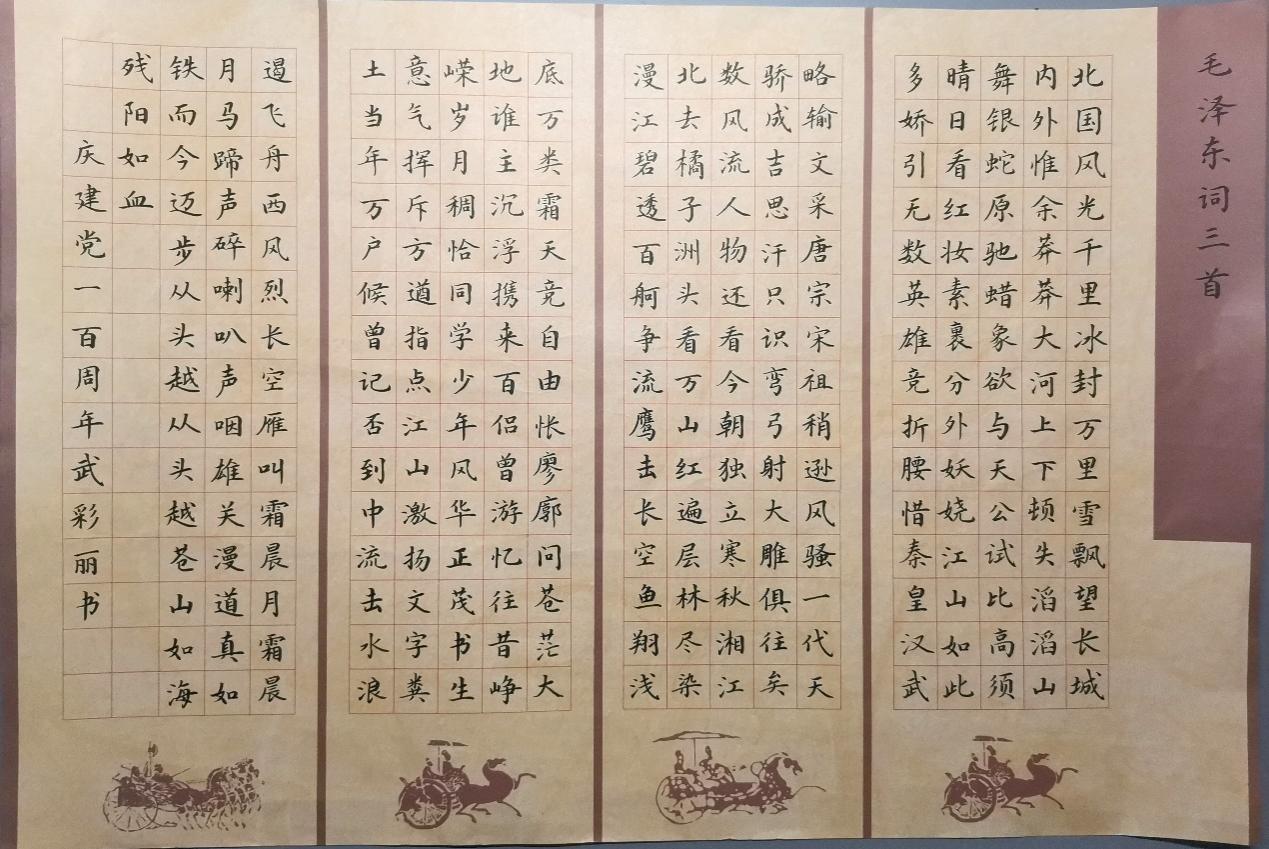 毛泽东词三首
北国风光千里冰封万里雪飘望长城
内外惟余莽莽大河上下顿失滔滔山
舞银蛇原驰蜡象欲与天公试比高须
晴日看红妆素裹分外妖娆江山如此
多娇引无数英雄竞折腰惜秦皇汉武
略输文采唐宗宋祖稍逊风骚一代天
骄成吉思汗只识弯弓射大雕俱往矣
数风流人物还看今朝独立寒秋湘江
北去橘子洲头看万山红遍层林尽染
漫江碧透百舸争流鹰击长空鱼翔浅
底万类霜天竞自由怅廖廓问苍茫大
地谁主沉浮携来百侣曾游忆往昔峥
嵘岁月稠恰同学少年风华正茂书生
意气挥斥方遒指点江山激扬文字粪
土当年万户候曾记否到中流击水浪
遏飞舟西风烈长空雁叫霜晨月霜晨
月马蹄声碎喇叭声咽雄关漫道真如
铁而今迈步从头越从头越苍山如海
残阳如血
庆建党一百周年武彩丽书